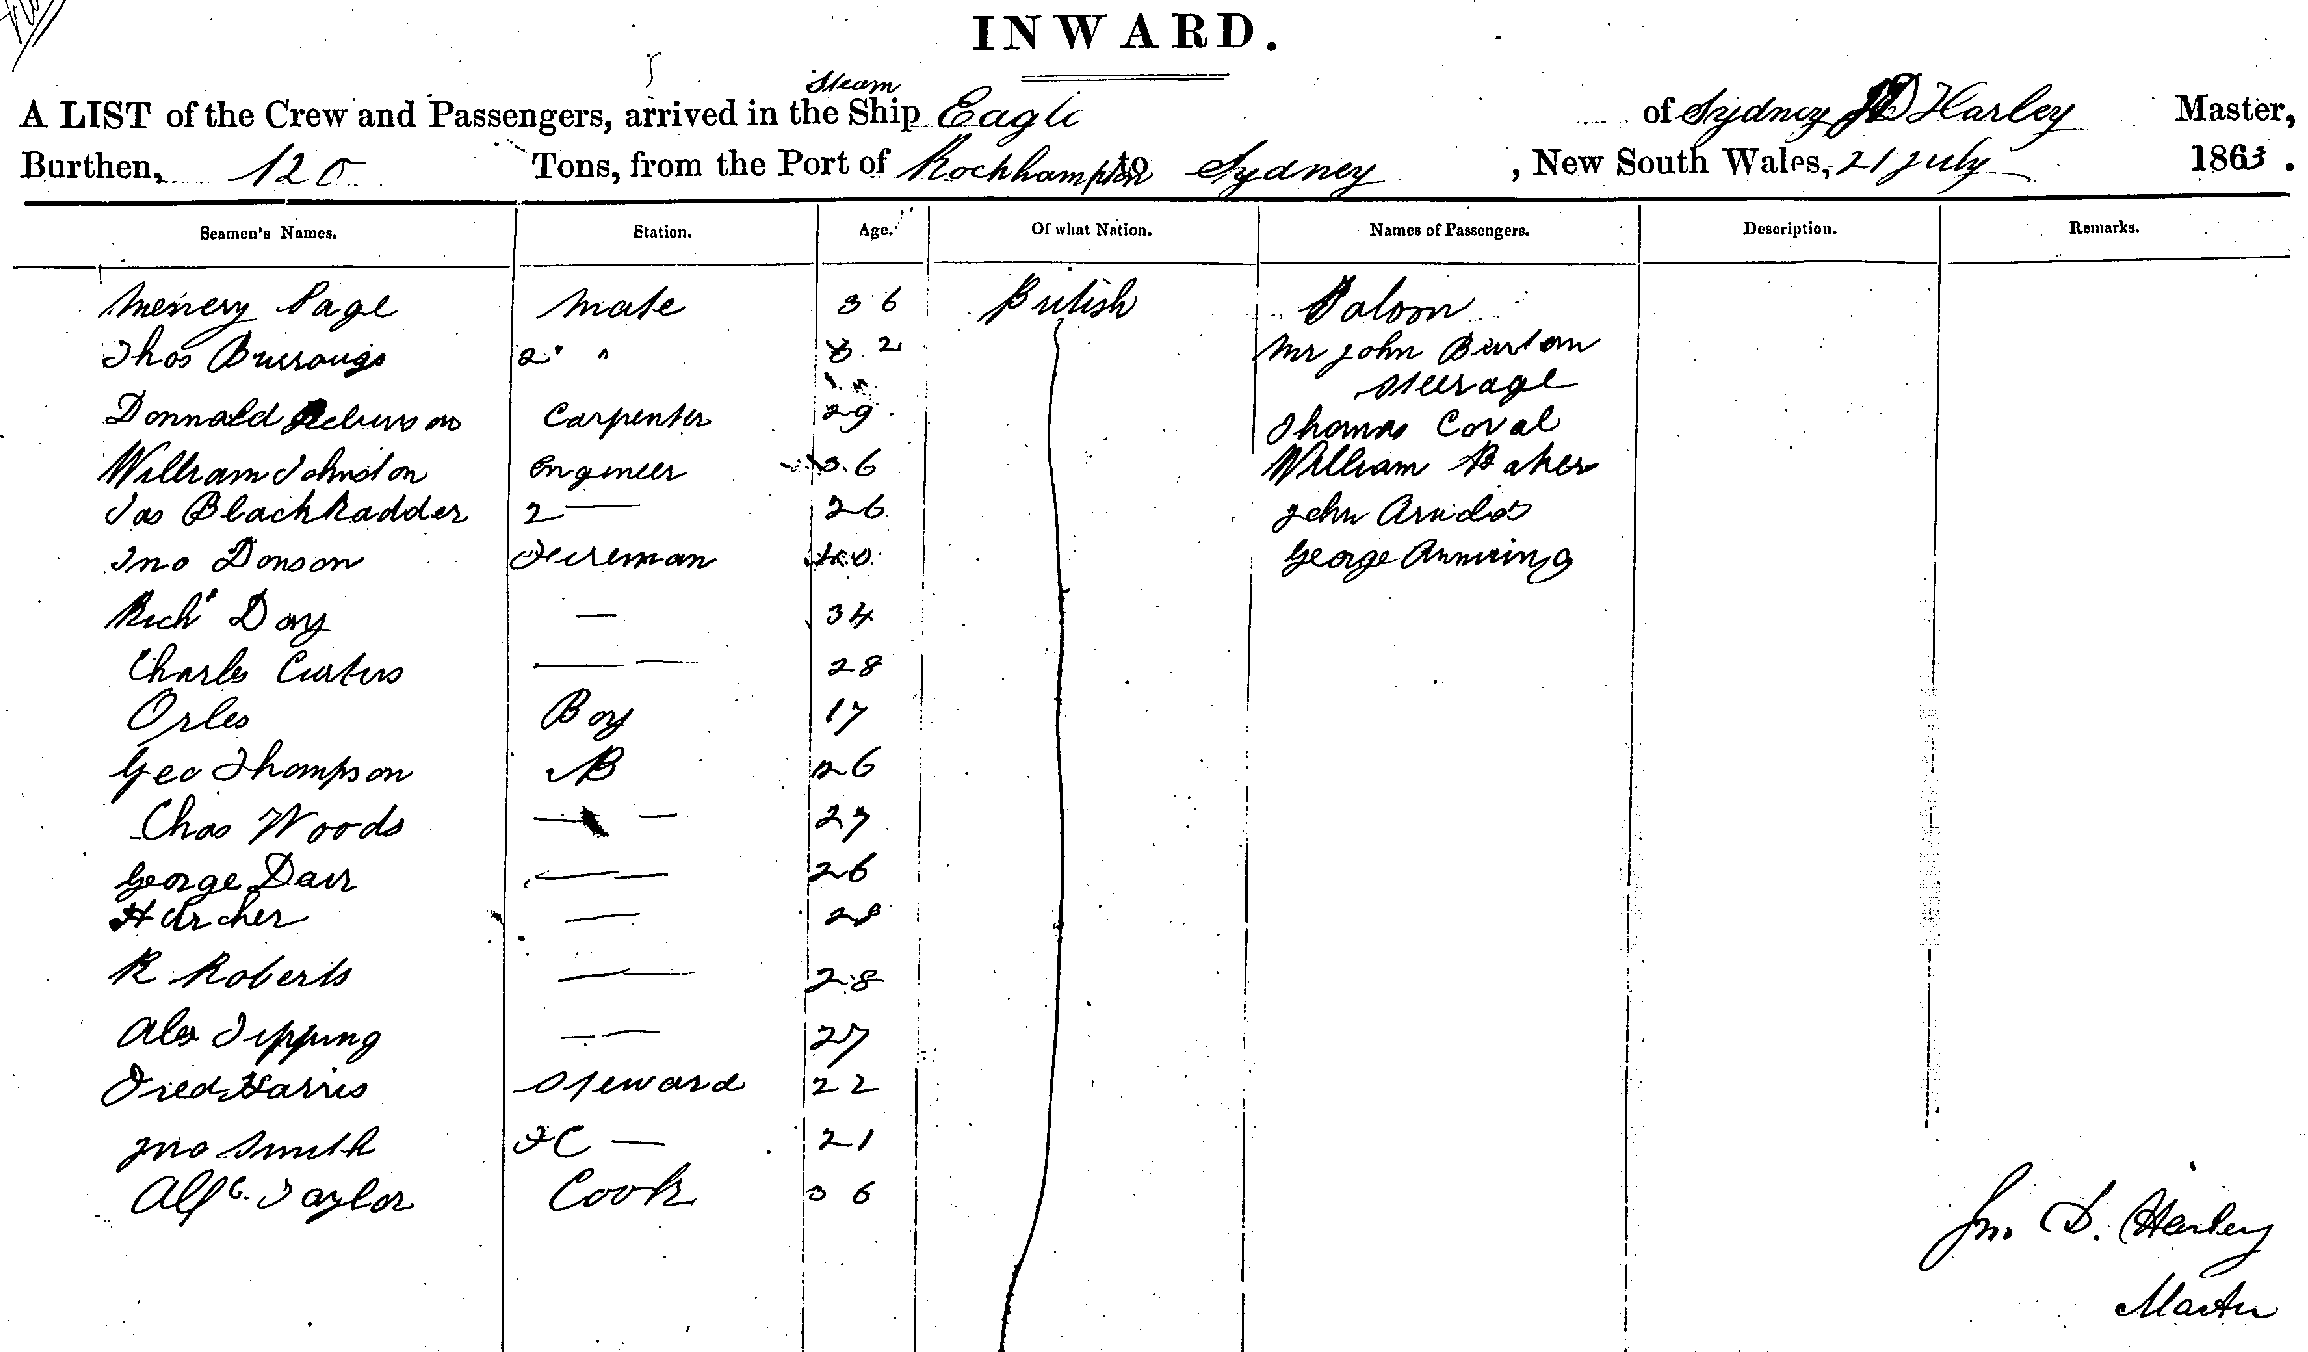 INWARD.
Steam
A LIST of the Crew and Passengers, arrived in the Ship Eagle of Sydney JD Harley Master,
Burthen, 120 Tons, from the Port of Rockhampton to Sydney, New South Wales, 21 July 1863.
Seamen's Names. Station. Age. Of what Nation. Names of Passengers. Description. Remarks.
Page Mate 36 British Saloon
Thos Burrows 2 " 32 Mr John Burton
Steerage
Donnald Carpenter 29 Thomas Coval
William Johnston Engineer 36 William Baker
Jas Blackkadder 2 — 26 John
Jno Donson Fireman George
Rich Day — 34
Charles Curtis — — 28
Orles Boy 17
Geo Thompson AB 26
Chas Woods — — 27
George Darr — — 26
H Archer — 28
R Roberts — 28
Alex Tipping — 27
Fred Harris Steward 22
Jno Smith FC — 21
Alf Taylor Cook 36
Jno. D. Harley
Master